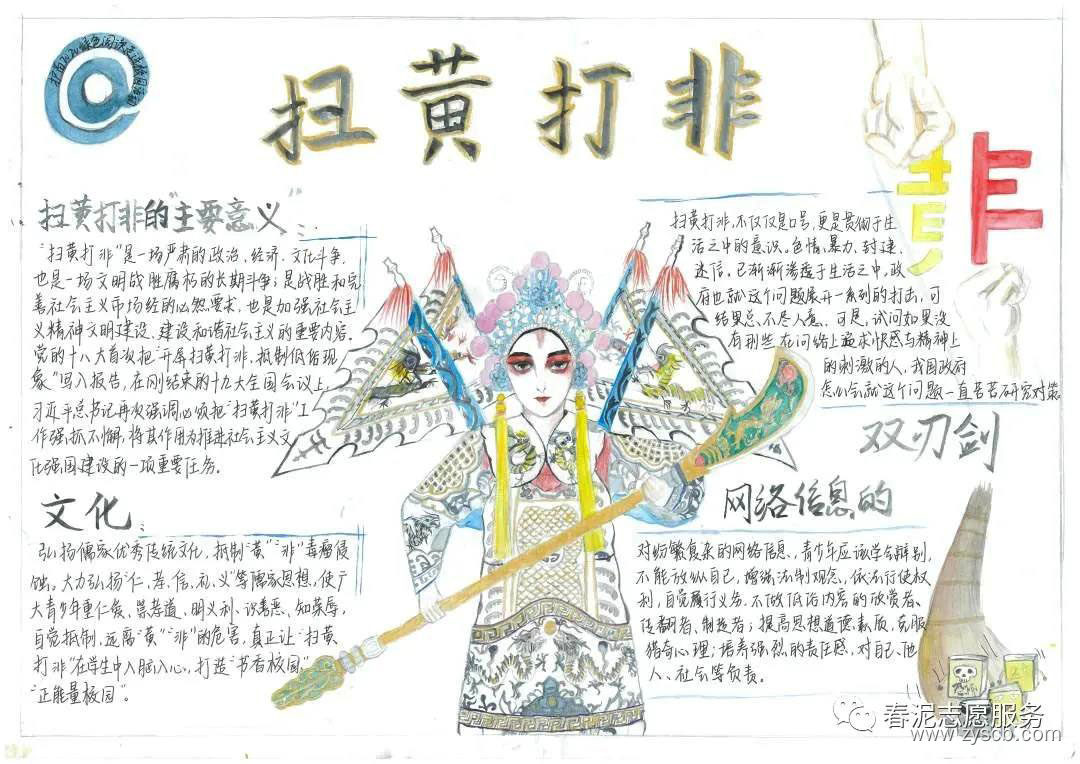 扫黄打非
扫黄打非的"主要意义"
"扫黄打非"是一场严肃的政治、经济、文化斗争,
也是一场文明战胜腐朽的长期斗争;是战胜和完
善社会主义市场经的必然要求,也是加强社会主
义精神文明建设、建设和谐社会主义的重要内容。
党的十八大首次把"开展扫黄打非,抵制低俗现
象"写入报告,在刚结束的十九大全国会议上,
习近平总书记再次强调,必须把"扫黄打非"工
作强抓不懈,将其作用为推进社会主义文
化强国建设的一项重要任务。
文化
弘扬儒家优秀传统文化,抵制"黄""非"毒瘤侵
蚀。大力弘扬"仁、孝、信、礼、义"等儒家思想,使广
大青少年重仁爱、崇善道、明义利、识善恶、知荣辱,
自觉抵制、远离"黄""非"的危害,真正让"扫黄
打非"在学生中入脑入心,打造"书香校园"
"正能量校园"。
黄非
扫黄打非,不仅仅是口号,更是贯彻于生
活之中的意识。色情、暴力、封建、
迷信,已渐渐渗透于生活之中,政
府也就这个问题展开一系列的打击,可
结果总不尽人意。可是,试问如果没
有那些在网络上追求快感与精神上
的刺激的人,我国政府
怎么会就这个问题一直苦苦研究对策
网络信息的
双刃剑
对纷繁复杂的网络信息,青少年应该学会辩别,
不能放纵自己,增强法制观念,依法行使权
利,自觉履行义务,不做低俗内容的欣赏者、
传翻者、制造者;提高思想道德素质,克服
猎奇心理;培养强烈的责任感,对自己、他
人、社会等负责。
春泥志愿服务
www.zyscb.com